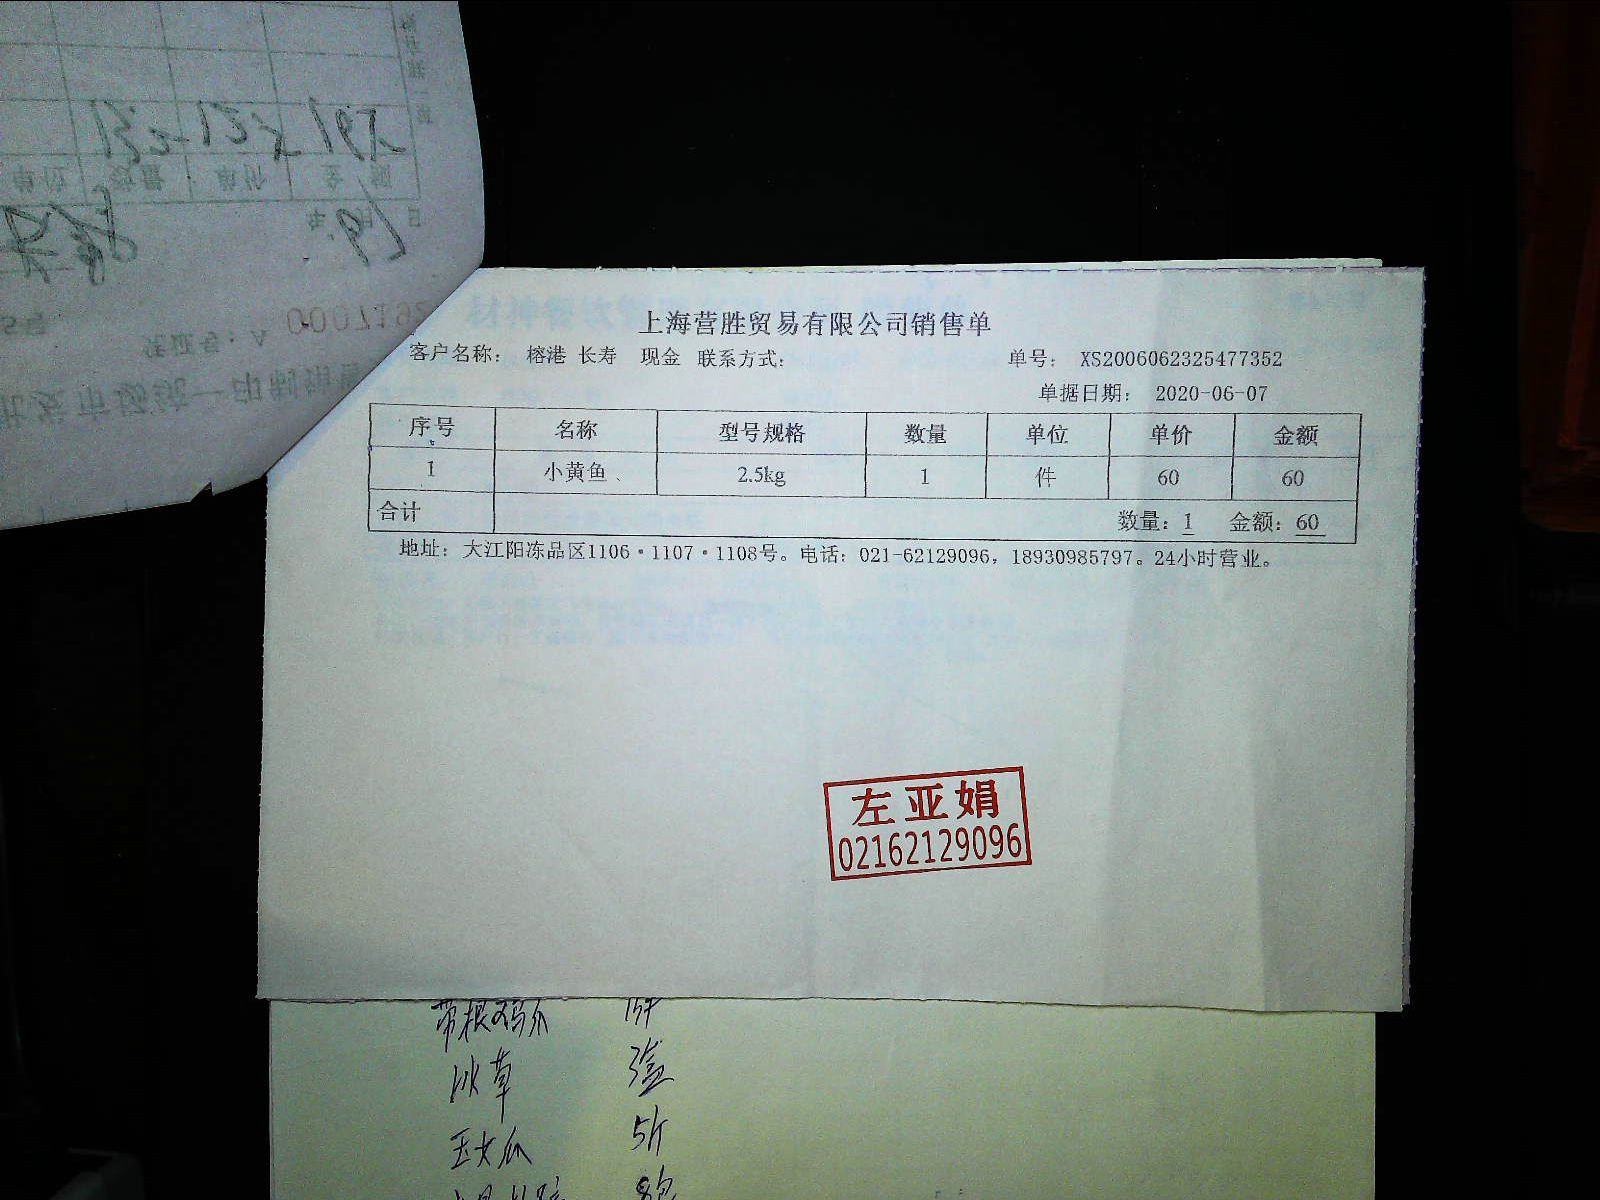 上海营胜贸易有限公司销售单
客户名称： 榕港 长寿 现金 联系方式： 单号： XS2006062325477352
单据日期： 2020-06-07
序号 名称 型号规格 数量 单位 单价 金额
1 小黄鱼 2.5kg 1 件 60 60
合计 数量：1 金额：60
地址：大江阳冻品区1106·1107·1108号。电话：021-62129096，18930985797。24小时营业。
左亚娟
02162129096
冰草 3盒
玉女瓜 5斤